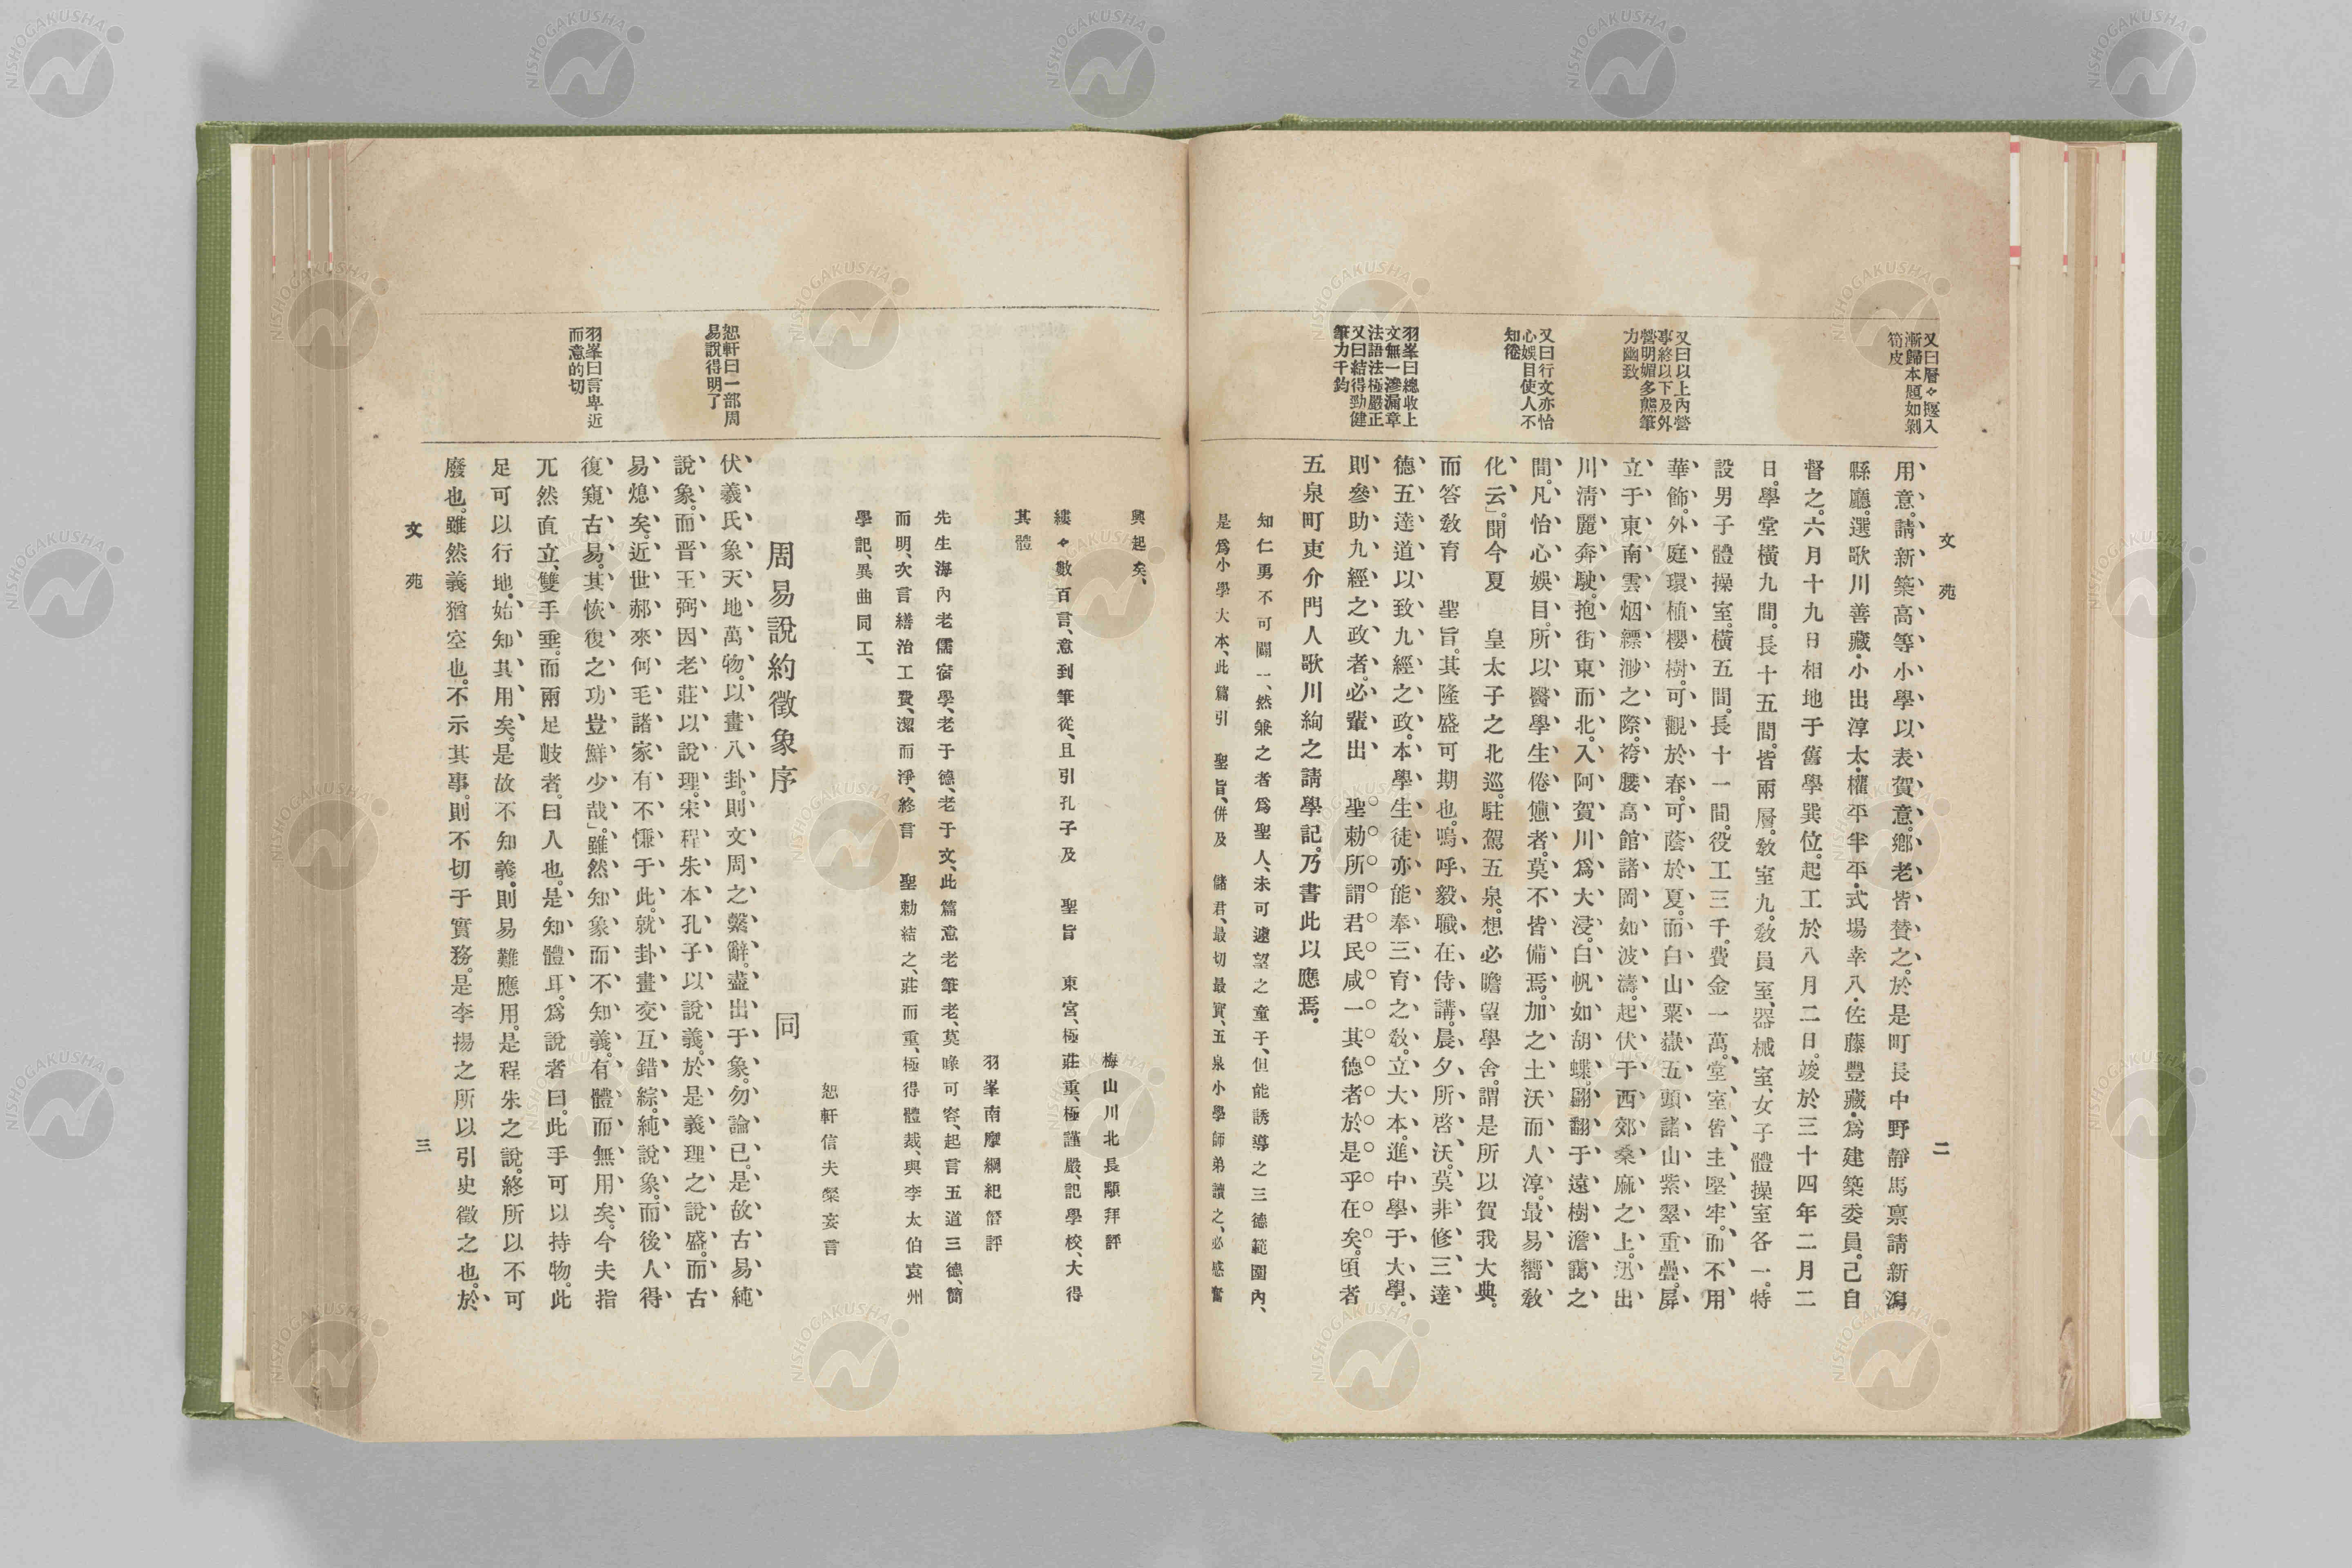 文苑
二
又曰層々堰入
漸歸本題如剝
筍皮
又曰以上內營
事終以下及外
營明媚多態筆
力幽致
又曰行文亦怡
心娛目使人不
知倦
羽峯曰總收上
文無一滲漏章
法語法極嚴正
又曰結得勁健
筆力千鈞
用意。請新築高等小學以表賀意。鄉老皆賛之。於是町長中野靜馬禀請新潟
縣廳。選歌川善藏・小出淳太・權平半平・式場幸八・佐藤豐藏・爲建築委員。己自
督之。六月十九日相地于舊學巽位。起工於八月二日。竣於三十四年二月二
日。學堂橫九間。長十五間。皆兩層。敎室九。敎員室、器械室、女子體操室各一。特
設男子體操室。橫五間。長十一間。役工三千。費金一萬。堂室皆主堅牢。而不用
華飾。外庭環植櫻樹。可觀於春。可蔭於夏。而白山粟嶽五頭諸山紫翠重疊。屛
立于東南雲烟縹渺之際。袴腰高館諸岡如波濤。起伏于西郊桑麻之上。迅出
川淸麗奔駛。抱街東而北。入阿賀川爲大浸。白帆如胡蝶。翩翻于遠樹澹靄之
間。凡怡心娛目。所以醫學生倦憊者。莫不皆備焉。加之土沃而人淳。最易嚮敎
化云」。聞今夏　皇太子之北巡。駐駕五泉。想必瞻望學舍。謂是所以賀我大典。
而答敎育　聖旨。其隆盛可期也。嗚呼毅職在侍講。晨夕所啓沃。莫非修三達
德五達道以致九經之政。本學生徒亦能奉三育之敎。立大本。進中學于大學。
則參助九經之政者。必輩出　聖勅所謂君民咸一其德者於是乎在矣。頃者
五泉町吏介門人歌川絢之請學記。乃書此以應焉。
知仁勇不可闕一、然兼之者爲聖人、未可遽望之童子、但能誘導之三德範圍內、
是爲小學大本、此篇引　聖旨、併及　儲君、最切最實、五泉小學師弟讀之、必感奮
興起矣、
梅山川北長顒拜評
縷々數百言、意到筆從、且引孔子及　聖旨　東宮、極莊重、極謹嚴、記學校、大得
其體
羽峯南摩綱紀僭評
先生海內老儒宿學、老于德、老于文、此篇意老筆老、莫喙可容、起言五道三德、簡
而明、次言繕治工費、潔而淨、終言　聖勅結之、莊而重、極得體裁、與李太伯袁州
學記、異曲同工、
恕軒信夫粲妄言
周易說約徵象序　同
恕軒曰一部周
易說得明了
羽峯曰言卑近
而意的切
伏羲氏象天地萬物。以畫八卦。則文周之繫辭。盡出于象。勿論已。是故古易純
說象。而晋王弼因老莊以說理。宋程朱本孔子以說義。於是義理之說盛。而古
易熄矣。近世郝來何毛諸家有不慊于此。就卦畫交互錯綜。純說象。而後人得
復窺古易。其恢復之功豈鮮少哉」。雖然知象而不知義。有體而無用矣。今夫指
兀然直立。雙手垂。而兩足岐者。曰人也。是知體耳。爲說者曰。此手可以持物。此
足可以行地。始知其用矣。是故不知義。則易難應用。是程朱之說。終所以不可
廢也。雖然義猶空也。不示其事。則不切于實務。是李揚之所以引史徵之也。於
文苑
三